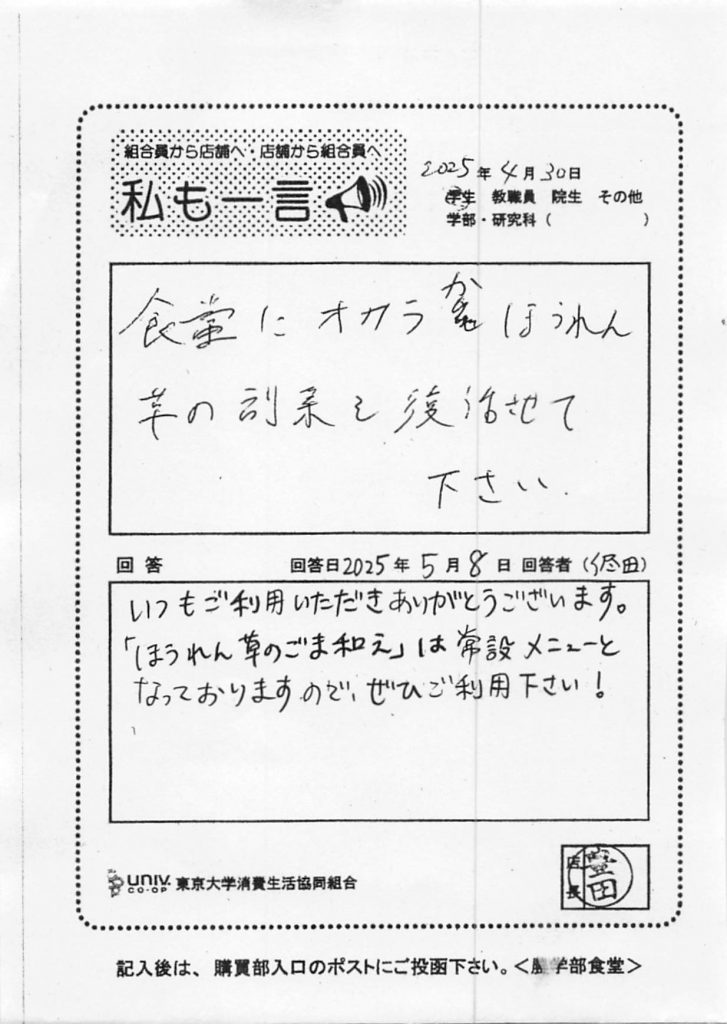 組合員から店舗へ・店舗から組合員へ
私も一言
2025年4月30日
学生 教職員 院生 その他
学部・研究科（ ）
食堂にオカラか ほうれん
草の副菜を復活させて
下さい.
回答 回答日2025年5月8日 回答者（ 田）
いつもご利用いただきありがとうございます。
「ほうれん草のごま和え」は常設メニューと
なっておりますので、ぜひご利用下さい！
UNIV.
CO-OP
東京大学消費生活協同組合
店長
豊田
記入後は、購買部入口のポストにご投函下さい。＜ 学部食堂＞